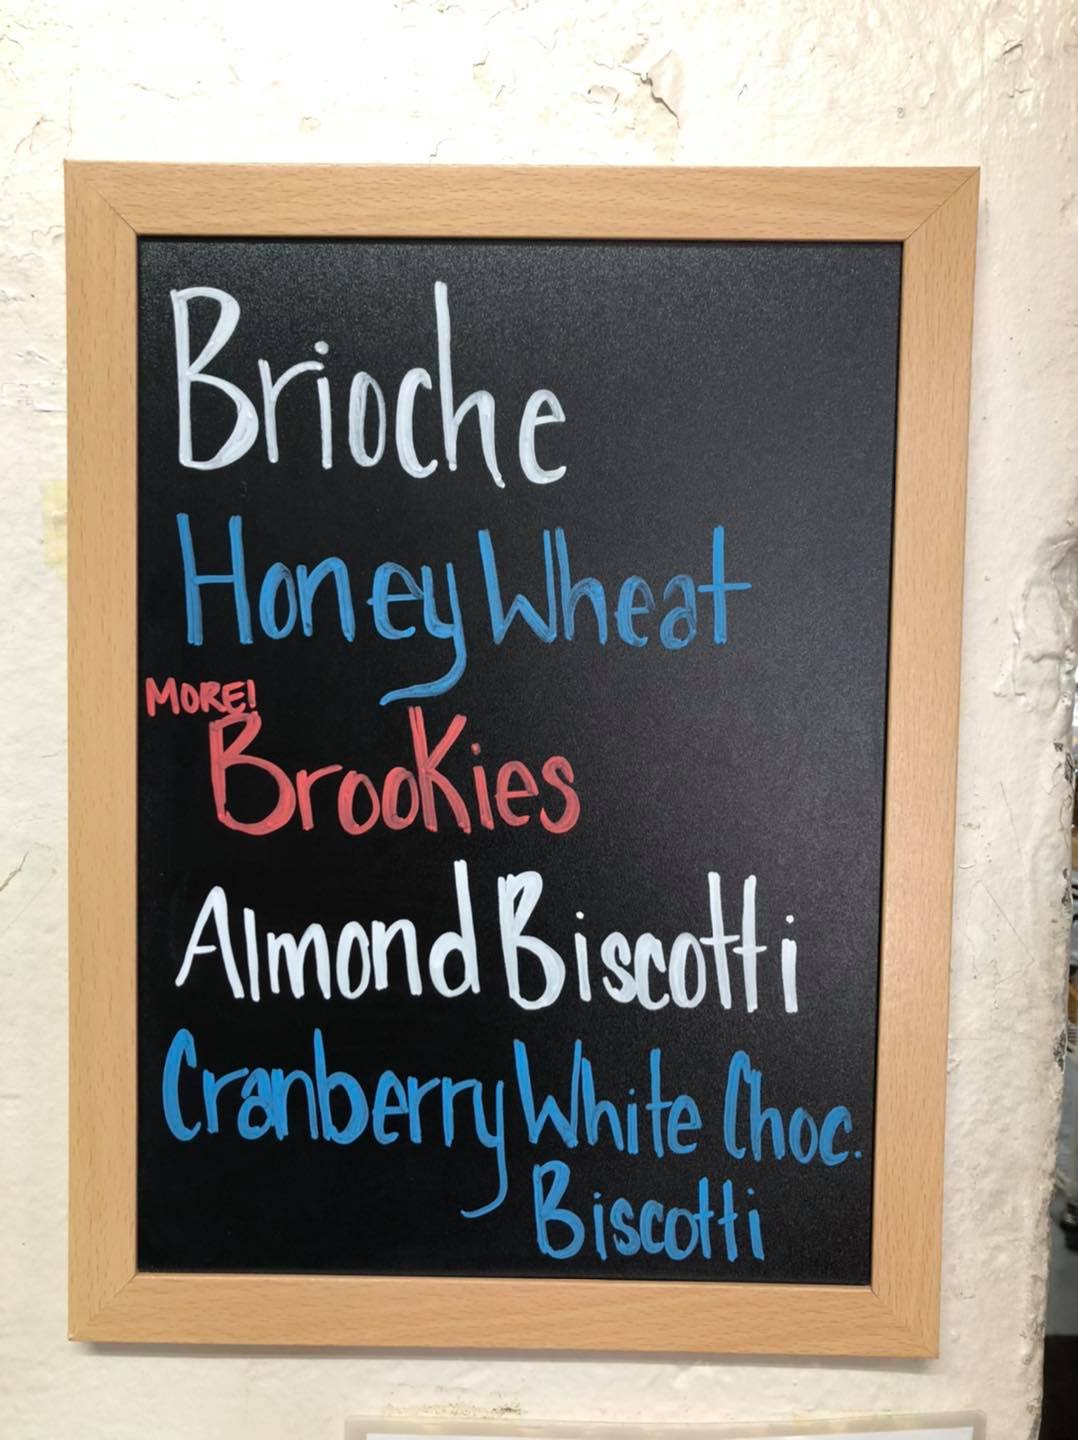 Brioche
Honey Wheat
MORE!
Brookies
Almond Biscotti
Cranberry White Choc.
Biscotti